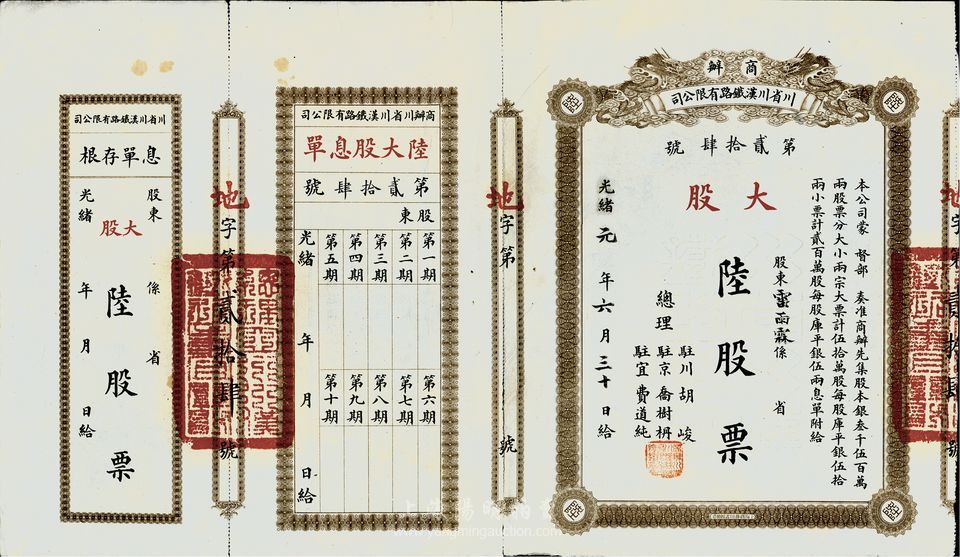 商辦
川省川漢鐵路有限公司
第貳拾肆號
大股
本公司蒙 督部 奏准商辦先集股本銀叁千伍百萬
兩股票分大小兩宗大票計伍拾萬股每股庫平銀伍拾
兩小票計貳百萬股每股庫平銀伍兩息單附給
股東雷雨霖係 省
陸股票
總理
駐川胡峻
駐京喬樹枬
駐宜費道純
光緒元年六月三十日給
地字第 號
商辦川省川漢鐵路有限公司
陸大股息單
第貳拾肆號
股東
第一期
第二期
第三期
第四期
第五期
第六期
第七期
第八期
第九期
第十期
光緒 年 月 日給
地字第貳拾肆號
川省川漢鐵路有限公司
息單存根
股東 係 省
大股
陸股票
光緒 年 月 日給
www.yangmingauction.com